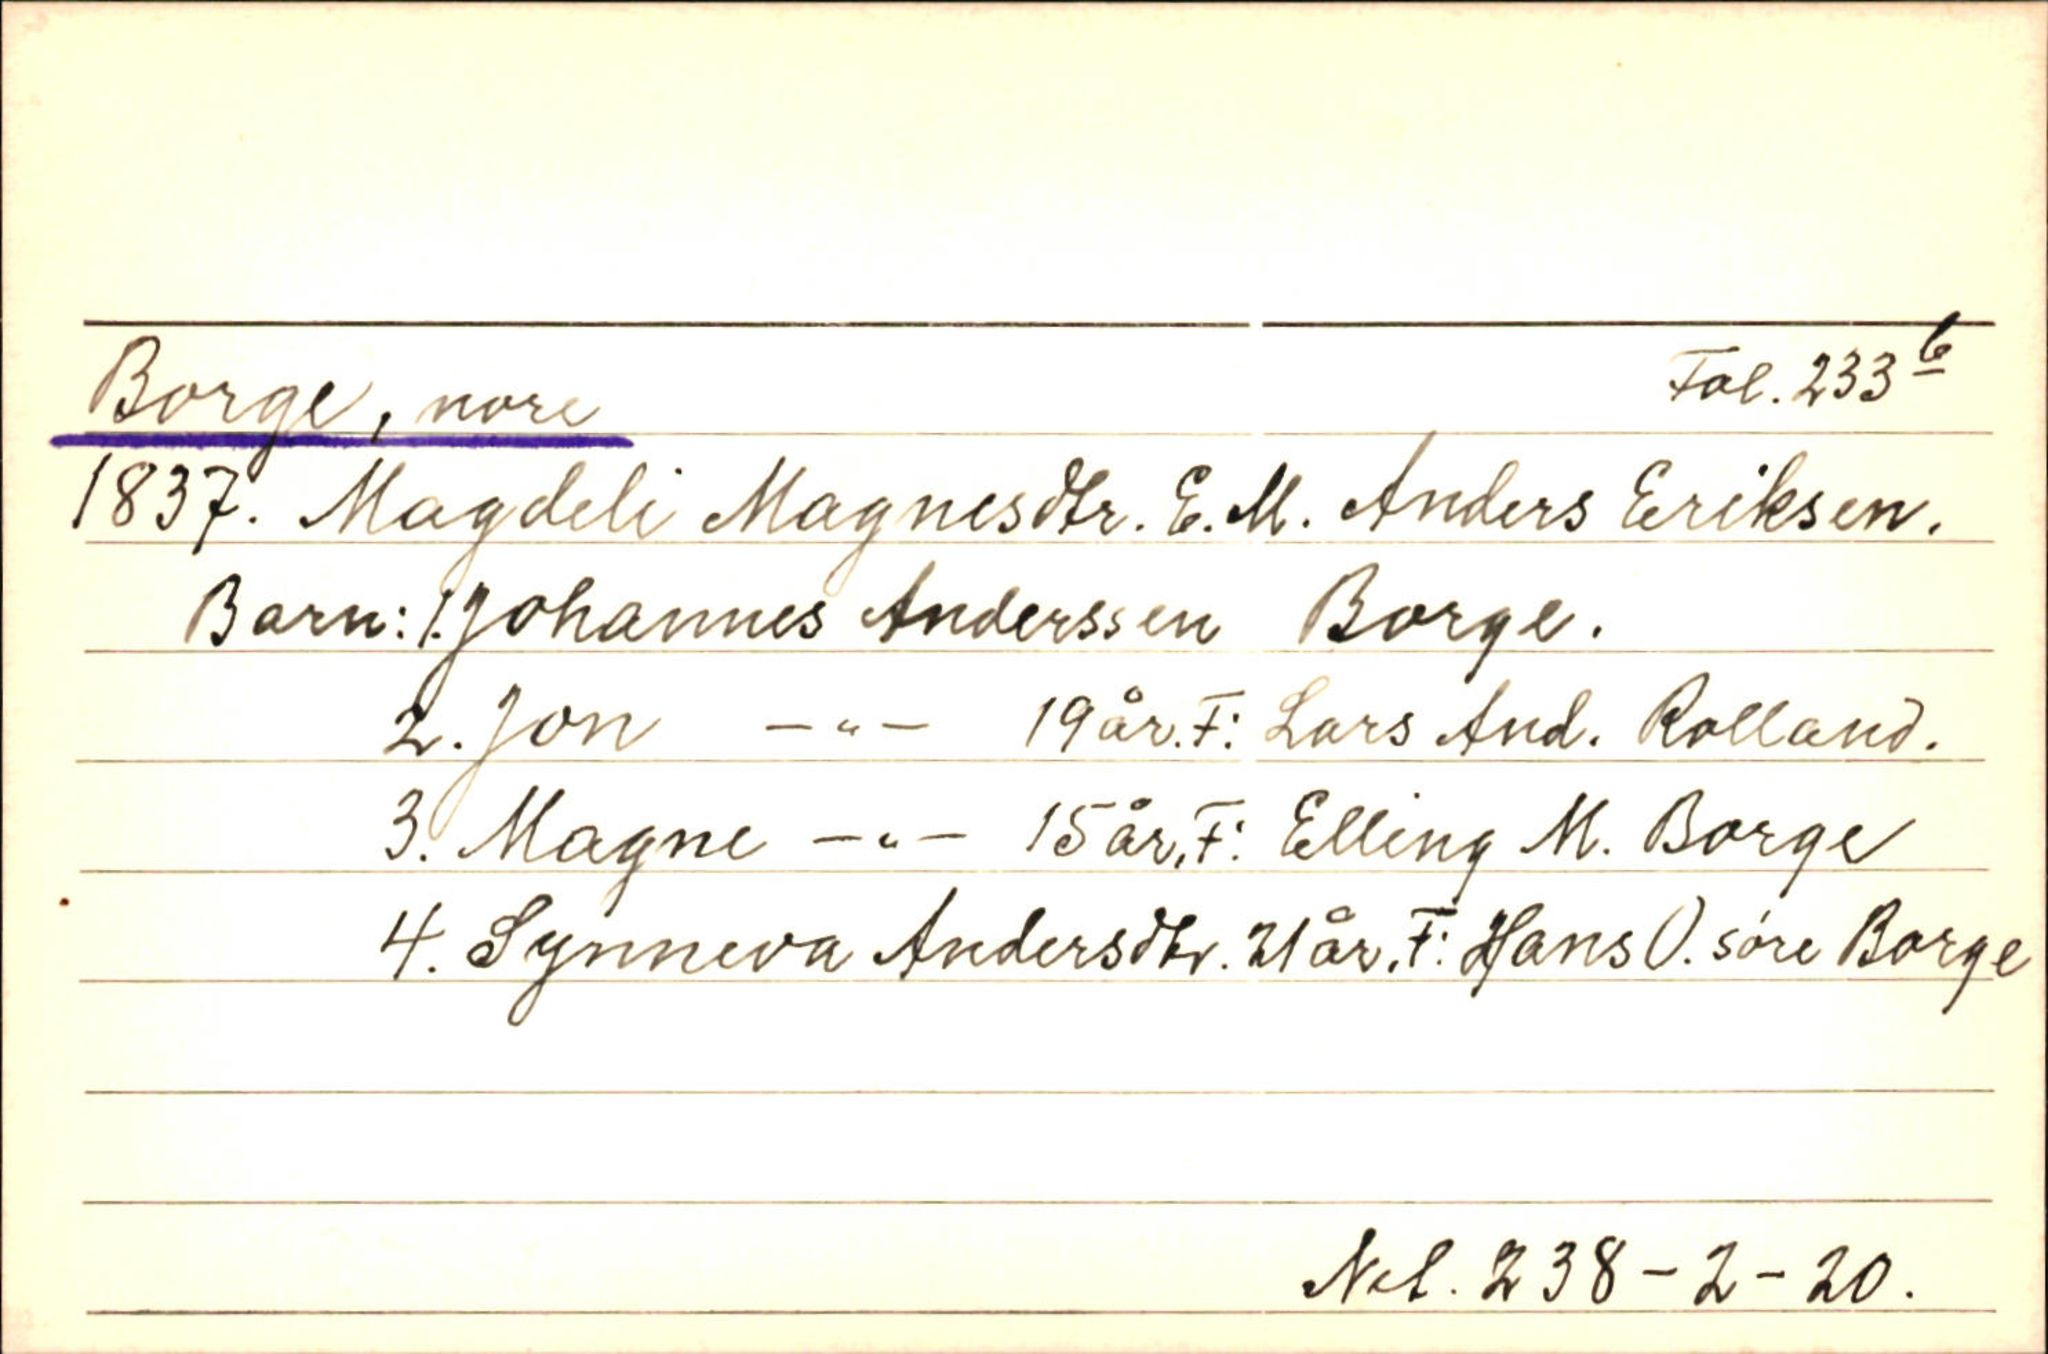 Borge, nore Fol. 233 b
1837. Magdeli Magnesdtr. E. M. Anders Eriksen.
Barn: 1. Johannes Anderssen Borge.
2. Jon —"— 19 år. F: Lars And. Rolland.
3. Magne —"— 15 år, F: Elling M. Borge
4. Synneva Andersdtr. 21 år, F: Hans O. søre Borge
Nd. 238-2-20.